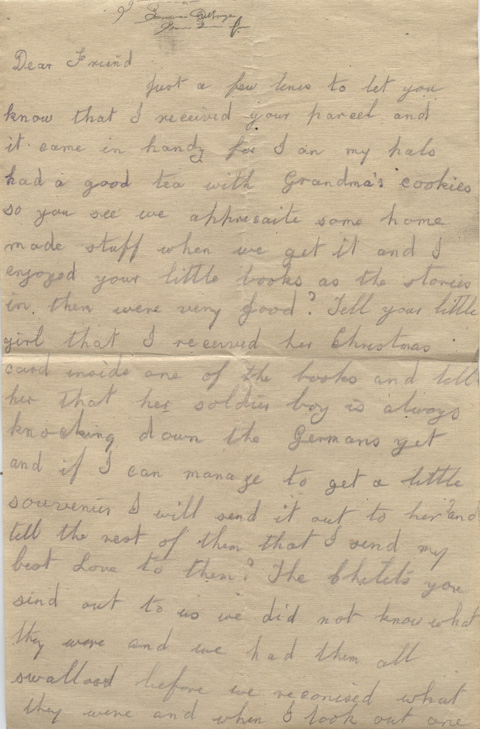 Dear Friend
Just a few lines to let you
know that I received your parcel and
it came in handy for I an my pals
had a good tea with Grandma's cookies
so you see we appresaite some home
made stuff when we get it and I
enjoyed your little books as the stories
in them were very good? Tell your little
girl that I received her Christmas
card inside one of the books and tell
her that her soldier boy is always
knocking down the Germans yet
and if I can manage to get a little
souvenir I will send it out to her? and
tell the rest of them that I send my
best Love to them? The you
send out to us we did not know what
they were and we had them all
swallowd before we reconised what
they were and when I took out one